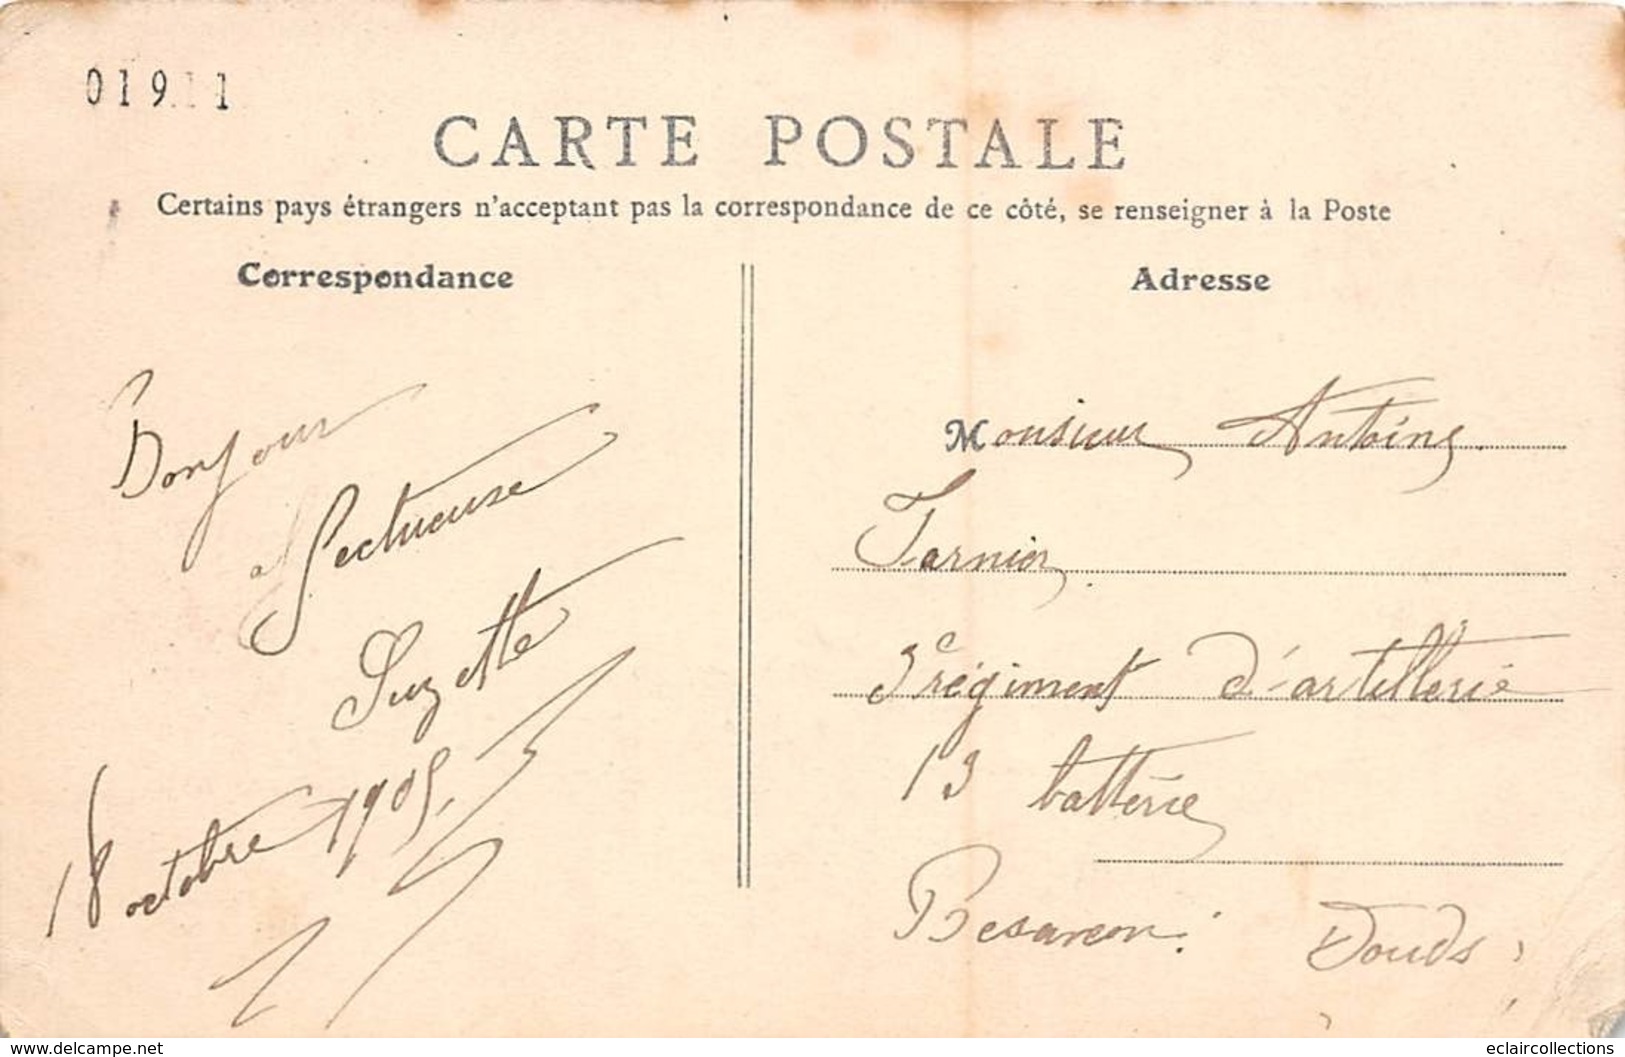 01911
CARTE POSTALE
Certains pays étrangers n'acceptant pas la correspondance de ce côté, se renseigner à la Poste
Correspondance
Adresse
Bonjour
affectueuse
Suzette
18 octobre 1905.
Monsieur Antoine
Farnier
3e régiment d'artillerie
13 batterie
Besancon.
Doubs
www.delcampe.net
eclaircollections